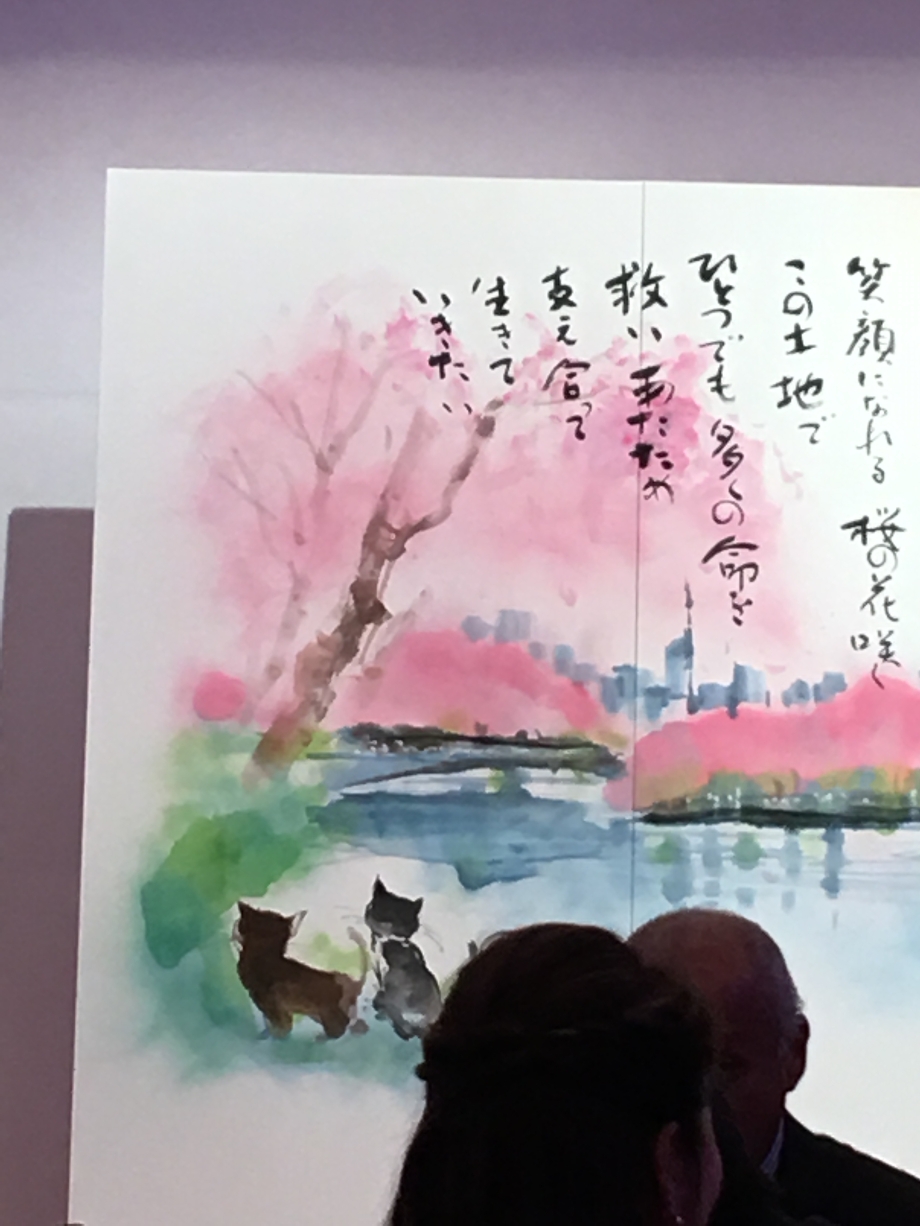 笑顔になれる 桜の花咲く
この土地で
ひとつでも多くの命を
救い あたため
支え合って
生きて
いきたい